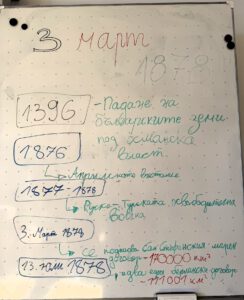 3 март
1878
1396 - Падане на
българските земи
под османска
власт
1876
Априлското въстание
1877-1878
Руско-Турската освободителна
война
3. Март 1878
се подписва Сан Стефанския мирен
договор - 170000 км²
13. юли 1878
договор
111001 км²